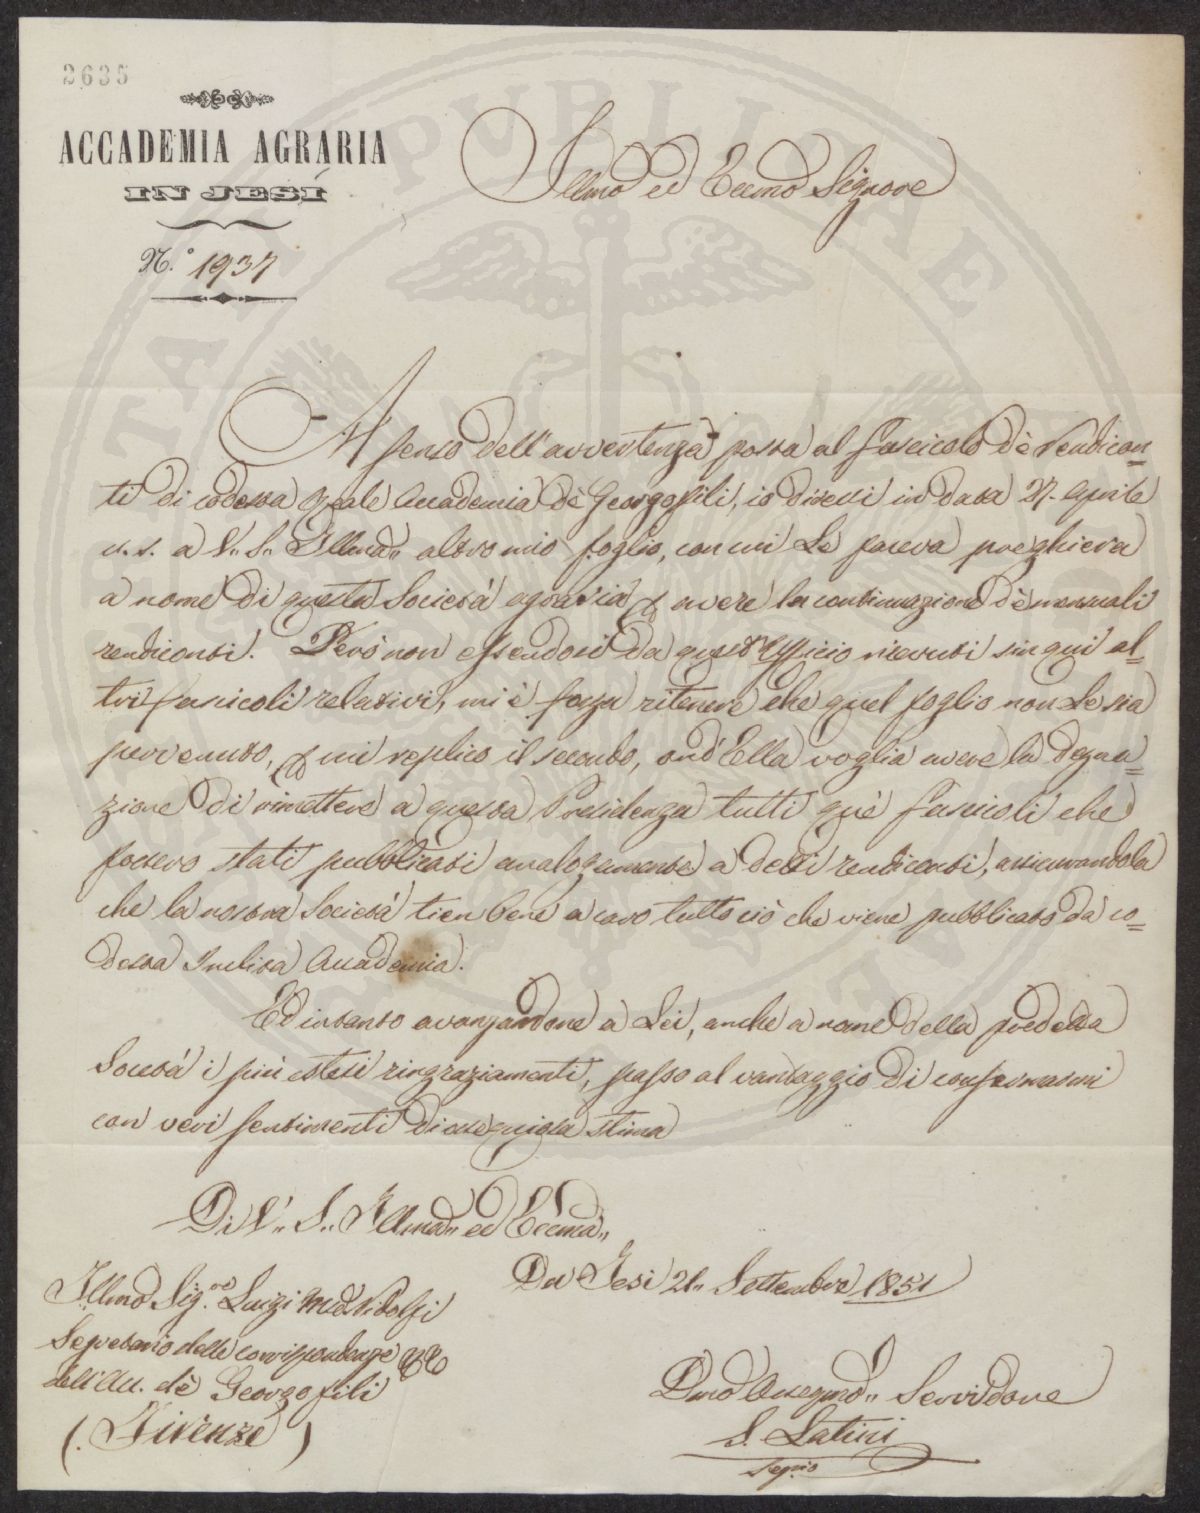 2635
ACCADEMIA AGRARIA
IN JESI
N.° 1937
Illmo ed Eccmo Signore
A senso dell'avvertenza posta al fascicolo dè rendicon=
ti di codesta Reale Accademia dè Georgofili, io diressi in data 27. Aprile
a V. S. Illma altro mio foglio, con cui Le faceva preghiera
a nome di questa Società agraria avere la continuazione dè mensuali
rendiconti. Però non essendosi da quest'Officio ricevuti sin qui al=
tri fascicoli relativi, mi è forza ritenere che quel foglio non Le sia
pervenuto, mi replico il secondo, ond'Ella voglia avere la degna=
zione di rimettere a questa Presidenza tutti què fascicoli che
fossero stati pubblicati analogamente a detti rendiconti, assicurandola
che la nostra Società tien bene a caro tutto ciò che viene pubblicato da co=
desta Inclita Accademia.
Ed intanto avanzandone a Lei, anche a nome della predetta
Società i più estesi ringraziamenti, passo al vantaggio di confermarmi
con veri sentimenti di ossequiosa stima
Di V. S. Illma ed Eccma
Da Jesi 21 Settembre 1851
Illmo Sig.re Luigi Ridolfi
Segretario delle corrispondenze
dell'Acc. dè Georgofili
(Firenze)
Dmo Ossequmo Servidore
S. Latini
Segrio
STATI PUBLICAE